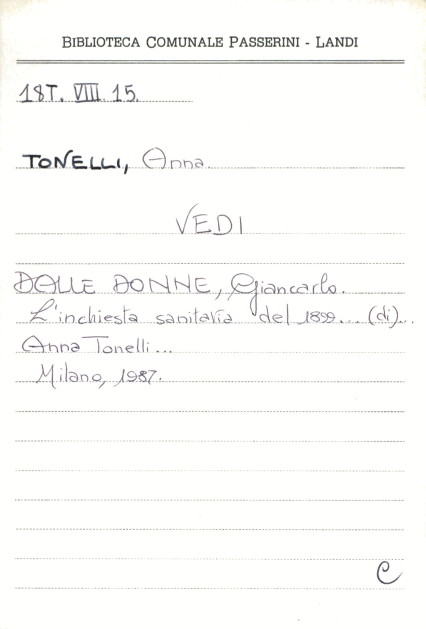 BIBLIOTECA COMUNALE PASSERINI - LANDI
18T. VIII. 15.
TONELLI, Anna.
VEDI
DALLE DONNE, Giancarlo.
L'inchiesta sanitaria del 1899... (di)...
Anna Tonelli...
Milano, 1987.
C